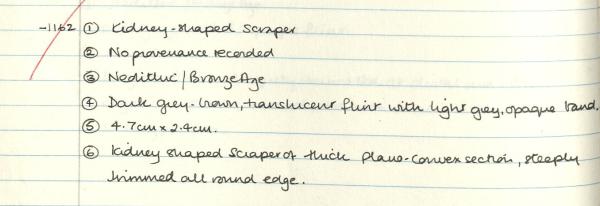 -1162 ① Kidney-shaped scraper
② No provenance recorded
③ Neolithic / Bronze Age
④ Dark grey-brown, translucent flint with light grey, opaque band.
⑤ 4.7cm x 2.4cm.
⑥ Kidney shaped scraper of thick plano-convex section, steeply
trimmed all round edge.